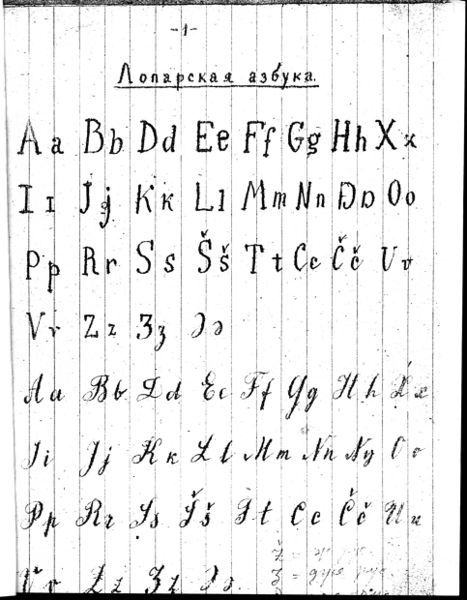 -1-
Лопарская азбука.
Aa Bb Dd Ee Ff Gg Hh Xx
Iı Jj Kк Ll Mm Nn Oo
Pp Rr Ss Šš Tt Cc Čč Uu
Vv Zz Ʒʒ Әə
Aa Bb Dd Ee Ff Gg Hh Xx
Ii Jj Kк Ll Mm Nn Oo
Pp Rr Ss Šš Tt Cc Čč Uu
Vv Zz Ʒʒ Әə